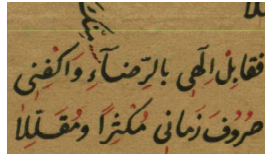 فقابل الٰهى بالرّضآءِ واكفنى
صروف زمانى مُكثرًا ومُقلّلا